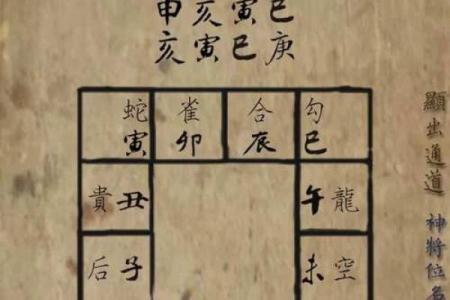 申亥寅巳
亥寅巳庚
蛇 雀 合 勾
寅 卯 辰 巳
貴丑 午龍
后子 未空
顯出通道 神將位名